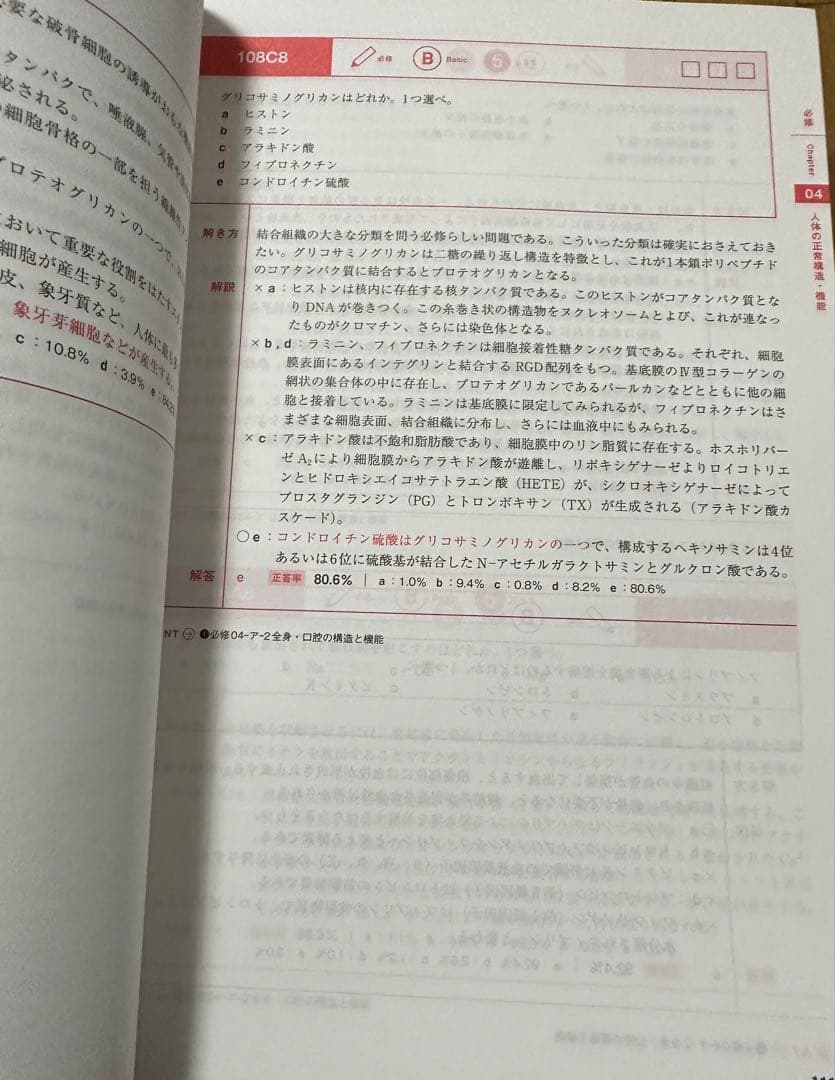 要な破骨細胞の誘導がおもな
タンパクで、唾液腺、気管や
泌される。
細胞骨格の一部を担う
プロテオグリカンの一つで、
おいて重要な役割をはたす
細胞が産生する。
皮、象牙質など、人体に最も多
象牙芽細胞などが産生する。
c：10.8% d：3.9% e：84.2%
108C8 必修 B Basic
グリコサミノグリカンはどれか。1つ選べ。
a ヒストン
b ラミニン
c アラキドン酸
d フィブロネクチン
e コンドロイチン硫酸
解き方 結合組織の大きな分類を問う必修らしい問題である。こういった分類は確実におさえておき
たい。グリコサミノグリカンは二糖の繰り返し構造を特徴とし、これが1本鎖ポリペプチド
のコアタンパク質に結合するとプロテオグリカンとなる。
解説 ×a：ヒストンは核内に存在する核タンパク質である。このヒストンがコアタンパク質とな
りDNAが巻きつく。この糸巻き状の構造物をヌクレオソームとよび、これが連なっ
たものがクロマチン、さらには染色体となる。
×b，d：ラミニン、フィブロネクチンは細胞接着性糖タンパク質である。それぞれ、細胞
膜表面にあるインテグリンと結合するRGD配列をもつ。基底膜のⅣ型コラーゲンの
網状の集合体の中に存在し、プロテオグリカンであるパールカンなどとともに他の細
胞と接着している。ラミニンは基底膜に限定してみられるが、フィブロネクチンはさ
まざまな細胞表面、結合組織に分布し、さらには血液中にもみられる。
×c：アラキドン酸は不飽和脂肪酸であり、細胞膜中のリン脂質に存在する。ホスホリパー
ゼA₂により細胞膜からアラキドン酸が遊離し、リポキシゲナーゼよりロイコトリエ
ンとヒドロキシエイコサテトラエン酸（HETE）が、シクロオキシゲナーゼによって
プロスタグランジン（PG）とトロンボキサン（TX）が生成される（アラキドン酸カ
スケード）。
○e：コンドロイチン硫酸はグリコサミノグリカンの一つで、構成するヘキソサミンは4位
あるいは6位に硫酸基が結合したN-アセチルガラクトサミンとグルクロン酸である。
解答 e 正答率 80.6% | a：1.0% b：9.4% c：0.8% d：8.2% e：80.6%
NT → ❶必修04-ア-2 全身・口腔の構造と機能
必修
Chapter
04
人体の正常構造・機能